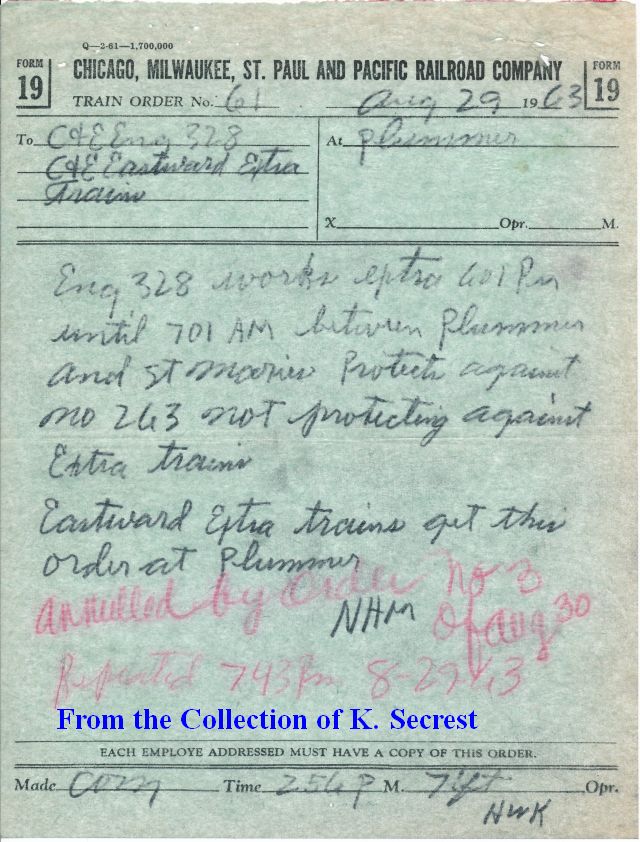 Q—2-61—1,700,000
FORM 19
CHICAGO, MILWAUKEE, ST. PAUL AND PACIFIC RAILROAD COMPANY
FORM 19
TRAIN ORDER No. 61 Aug 29 1963
To C&E Eng 328
C&E Eastward Extra
Trains
At Plummer
X Opr. M.
Eng 328 works extra 601 Pm
until 701 AM between Plummer
and St Maries Protects against
No 263 not protecting against
Extra trains
Eastward Extra trains get this
order at Plummer
annulled by order No 3
NHM
of Aug 30
Repeated 743 Pm 8-29-63
From the Collection of K. Secrest
EACH EMPLOYE ADDRESSED MUST HAVE A COPY OF THIS ORDER.
Made Com Time 256 P M. Tift Opr.
HWK